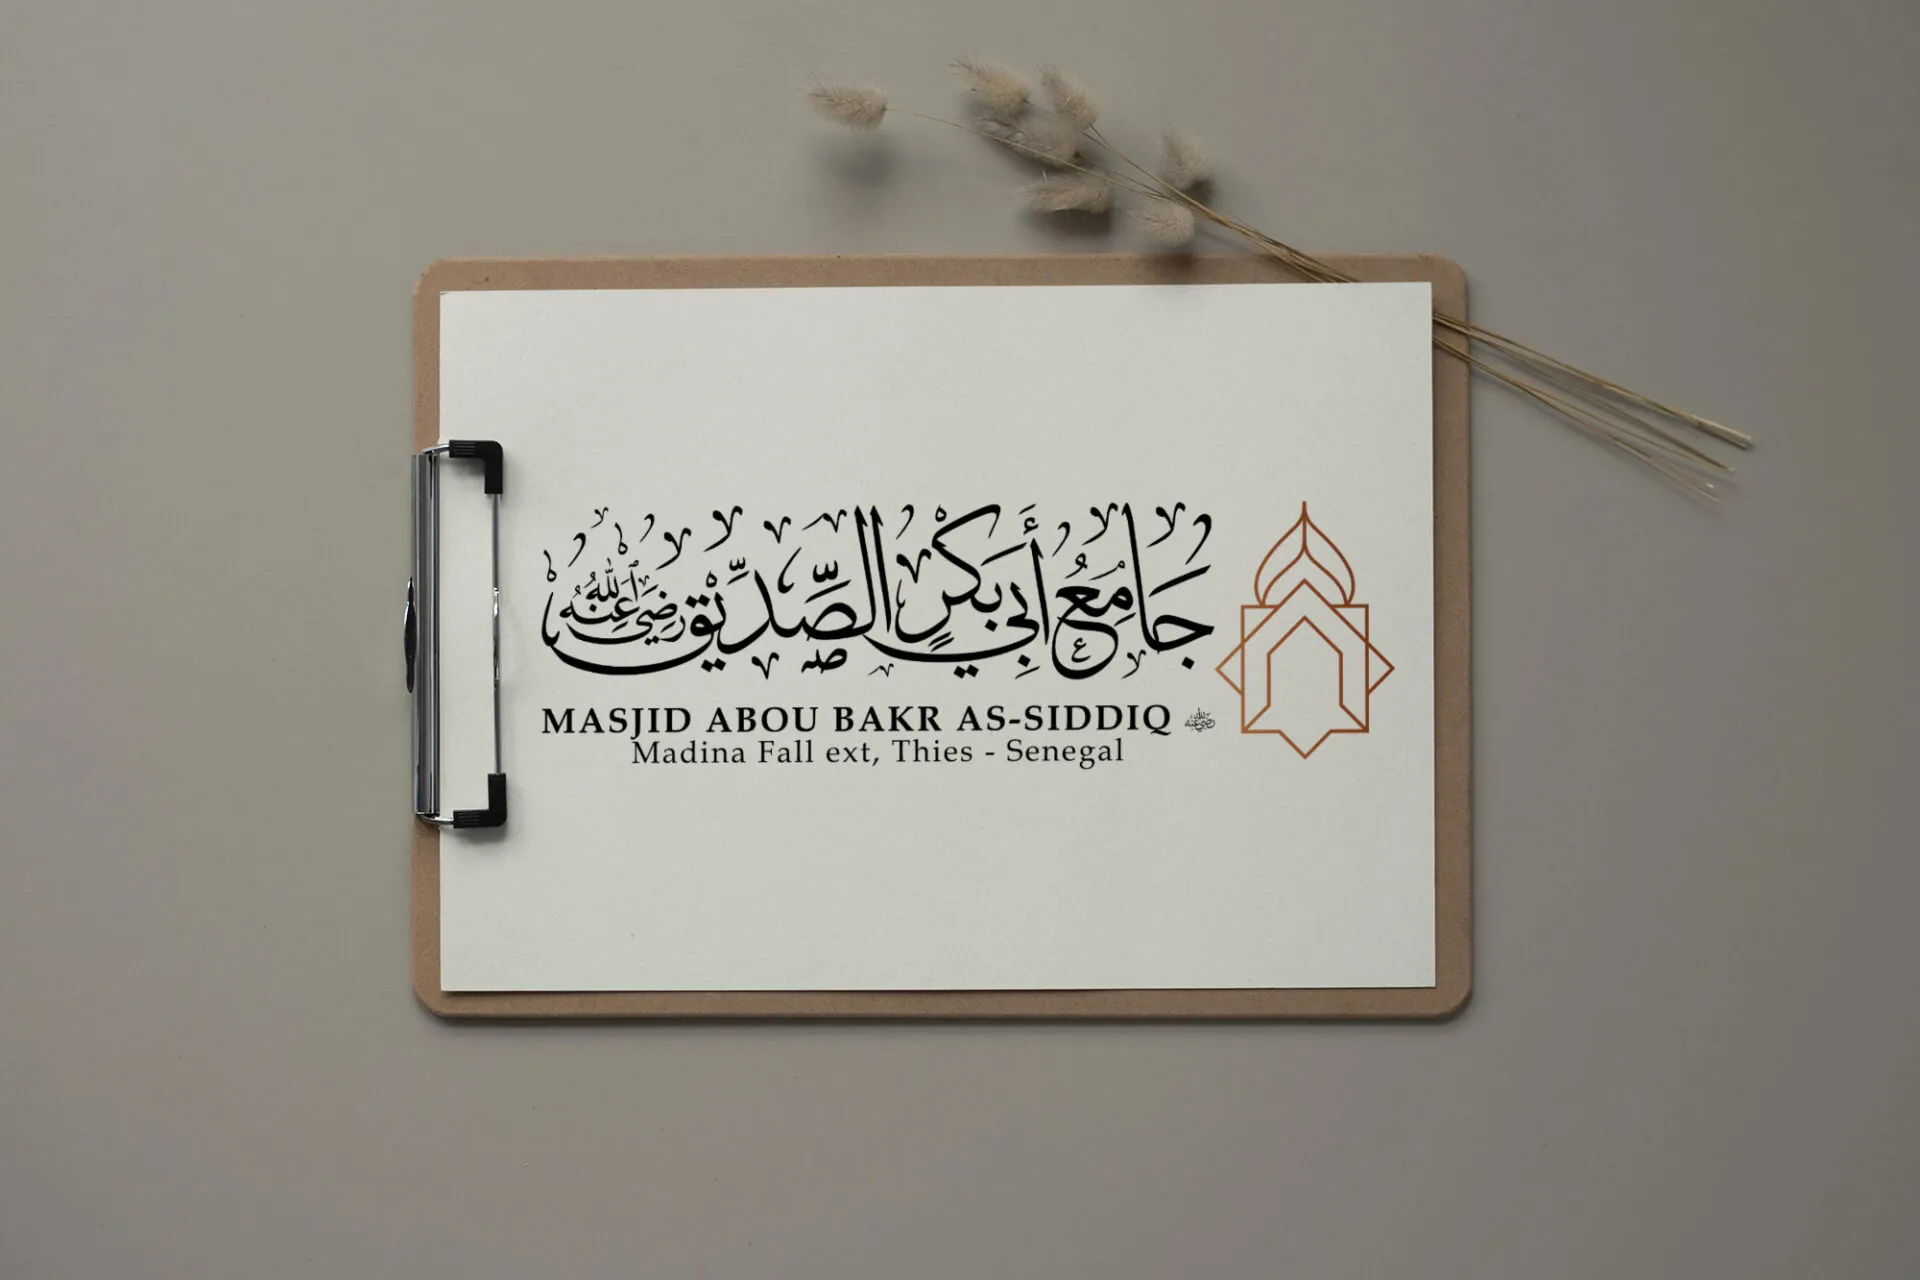 جَامِعُ أَبِي بَكْرٍ الصِّدِّيقِ رَضِيَ اللهُ عَنْهُ
MASJID ABOU BAKR AS-SIDDIQ رضي الله عنه
Madina Fall ext, Thies - Senegal